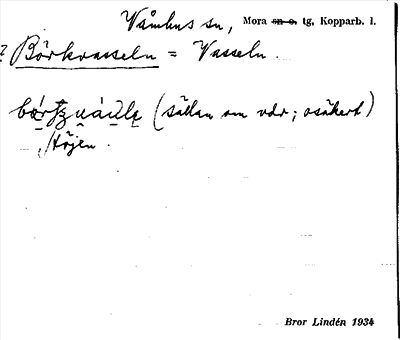 Våmhus sn, Mora sn o. tg, Kopparb. l.
? Börkvasseln = Vasseln.
(sällan om vdr; osäkert)
/töjen.
Bror Lindén 1934